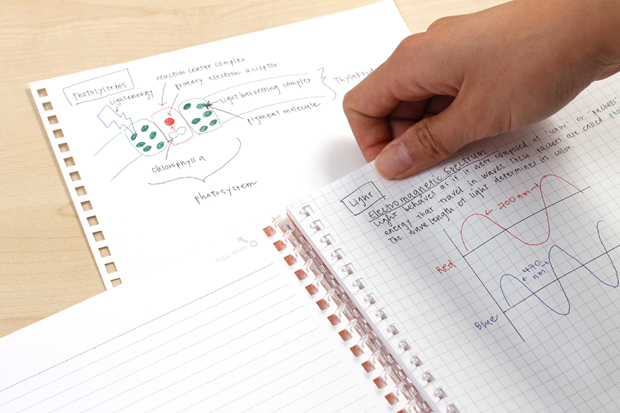 Photosystems
light energy
reaction center complex
primary electron acceptor
light harvesting complex
pigment molecule
chlorophyll a
photosystem
Light
Electromagnetic Spectrum
Light behaves as if it were composed of "units" or "packets"
energy that travel in waves. These packets are called
The wavelength of light determines its color.
700nm
Red
470
nm
Blue